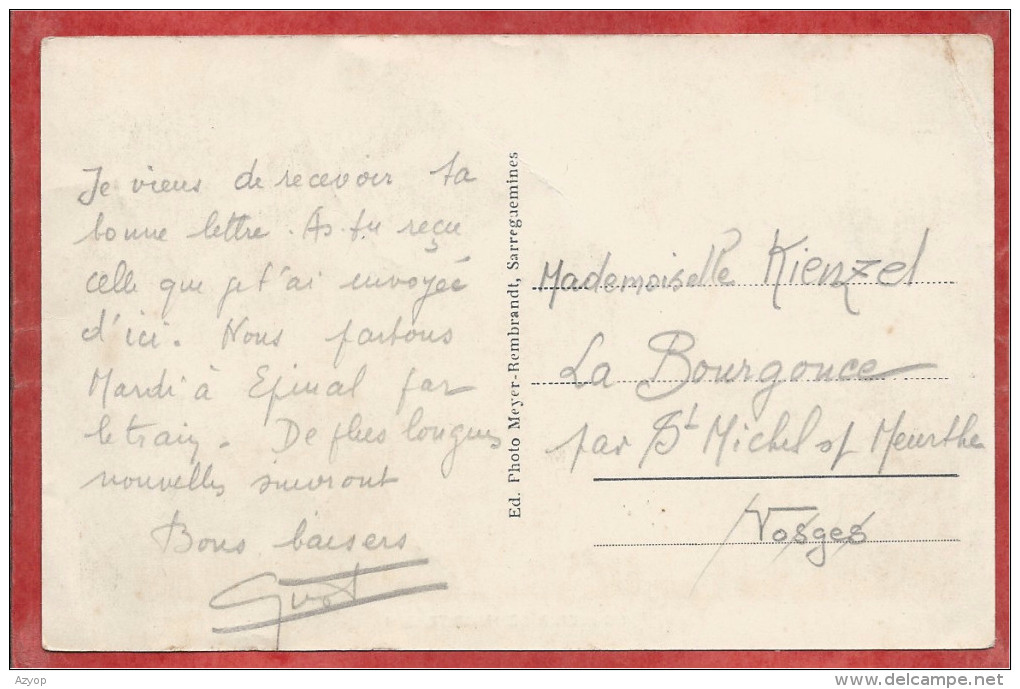 Je viens de recevoir ta
bonne lettre. As-tu reçu
celle que je t'ai envoyée
d'ici. Nous partons
Mardi à Epinal par
le train. De plus longues
nouvelles suivront
Bons baisers
Ed. Photo Meyer-Rembrandt, Sarreguemines
Mademoiselle Kienzel
La Bourgonce
par St Michel s/ Meurthe
Vosges
Azyop
delcampe.net